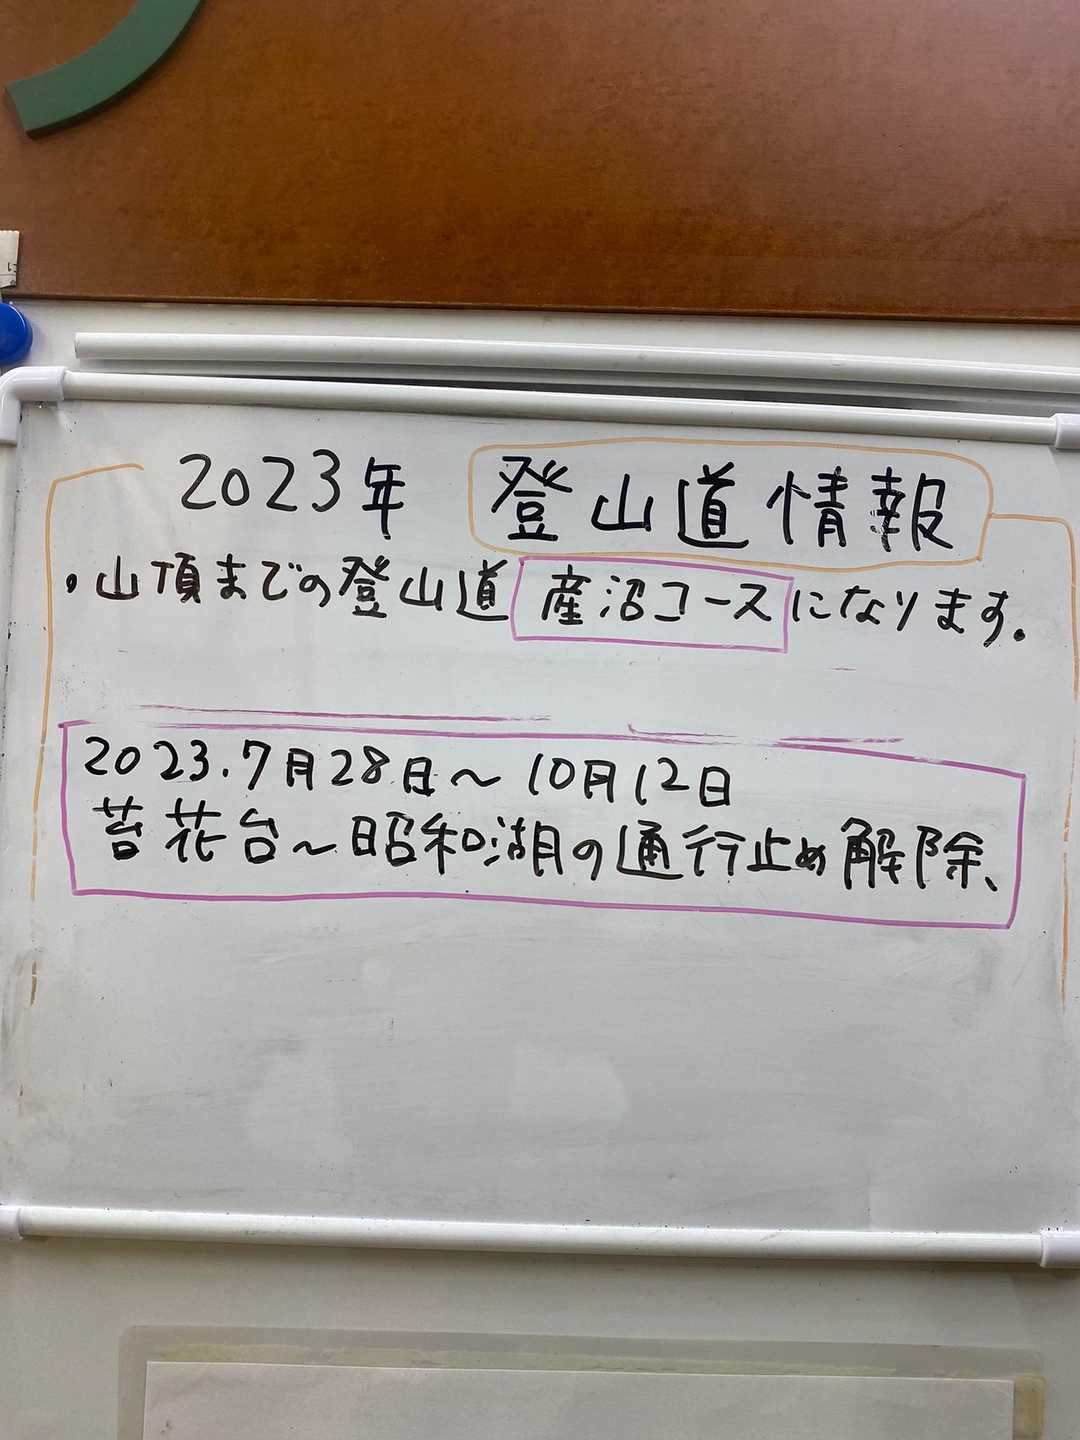 2023年 登山道情報
・山頂までの登山道 産沼コースになります。
2023.7月28日～10月12日
苔花台～昭和湖の通行止め解除、